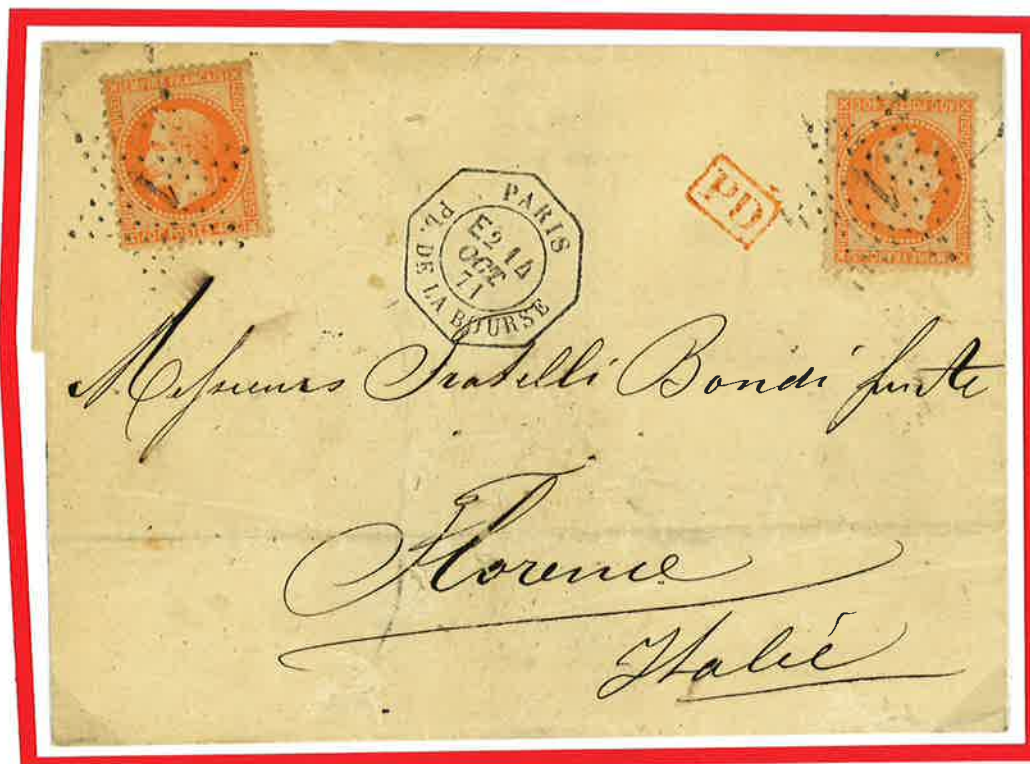 EMPIRE FRANÇAIS
1
PARIS
E2
14
OCT
71
PL. DE LA BOURSE
PD
1
Messieurs Fratelli Bondi
Florence
Italie